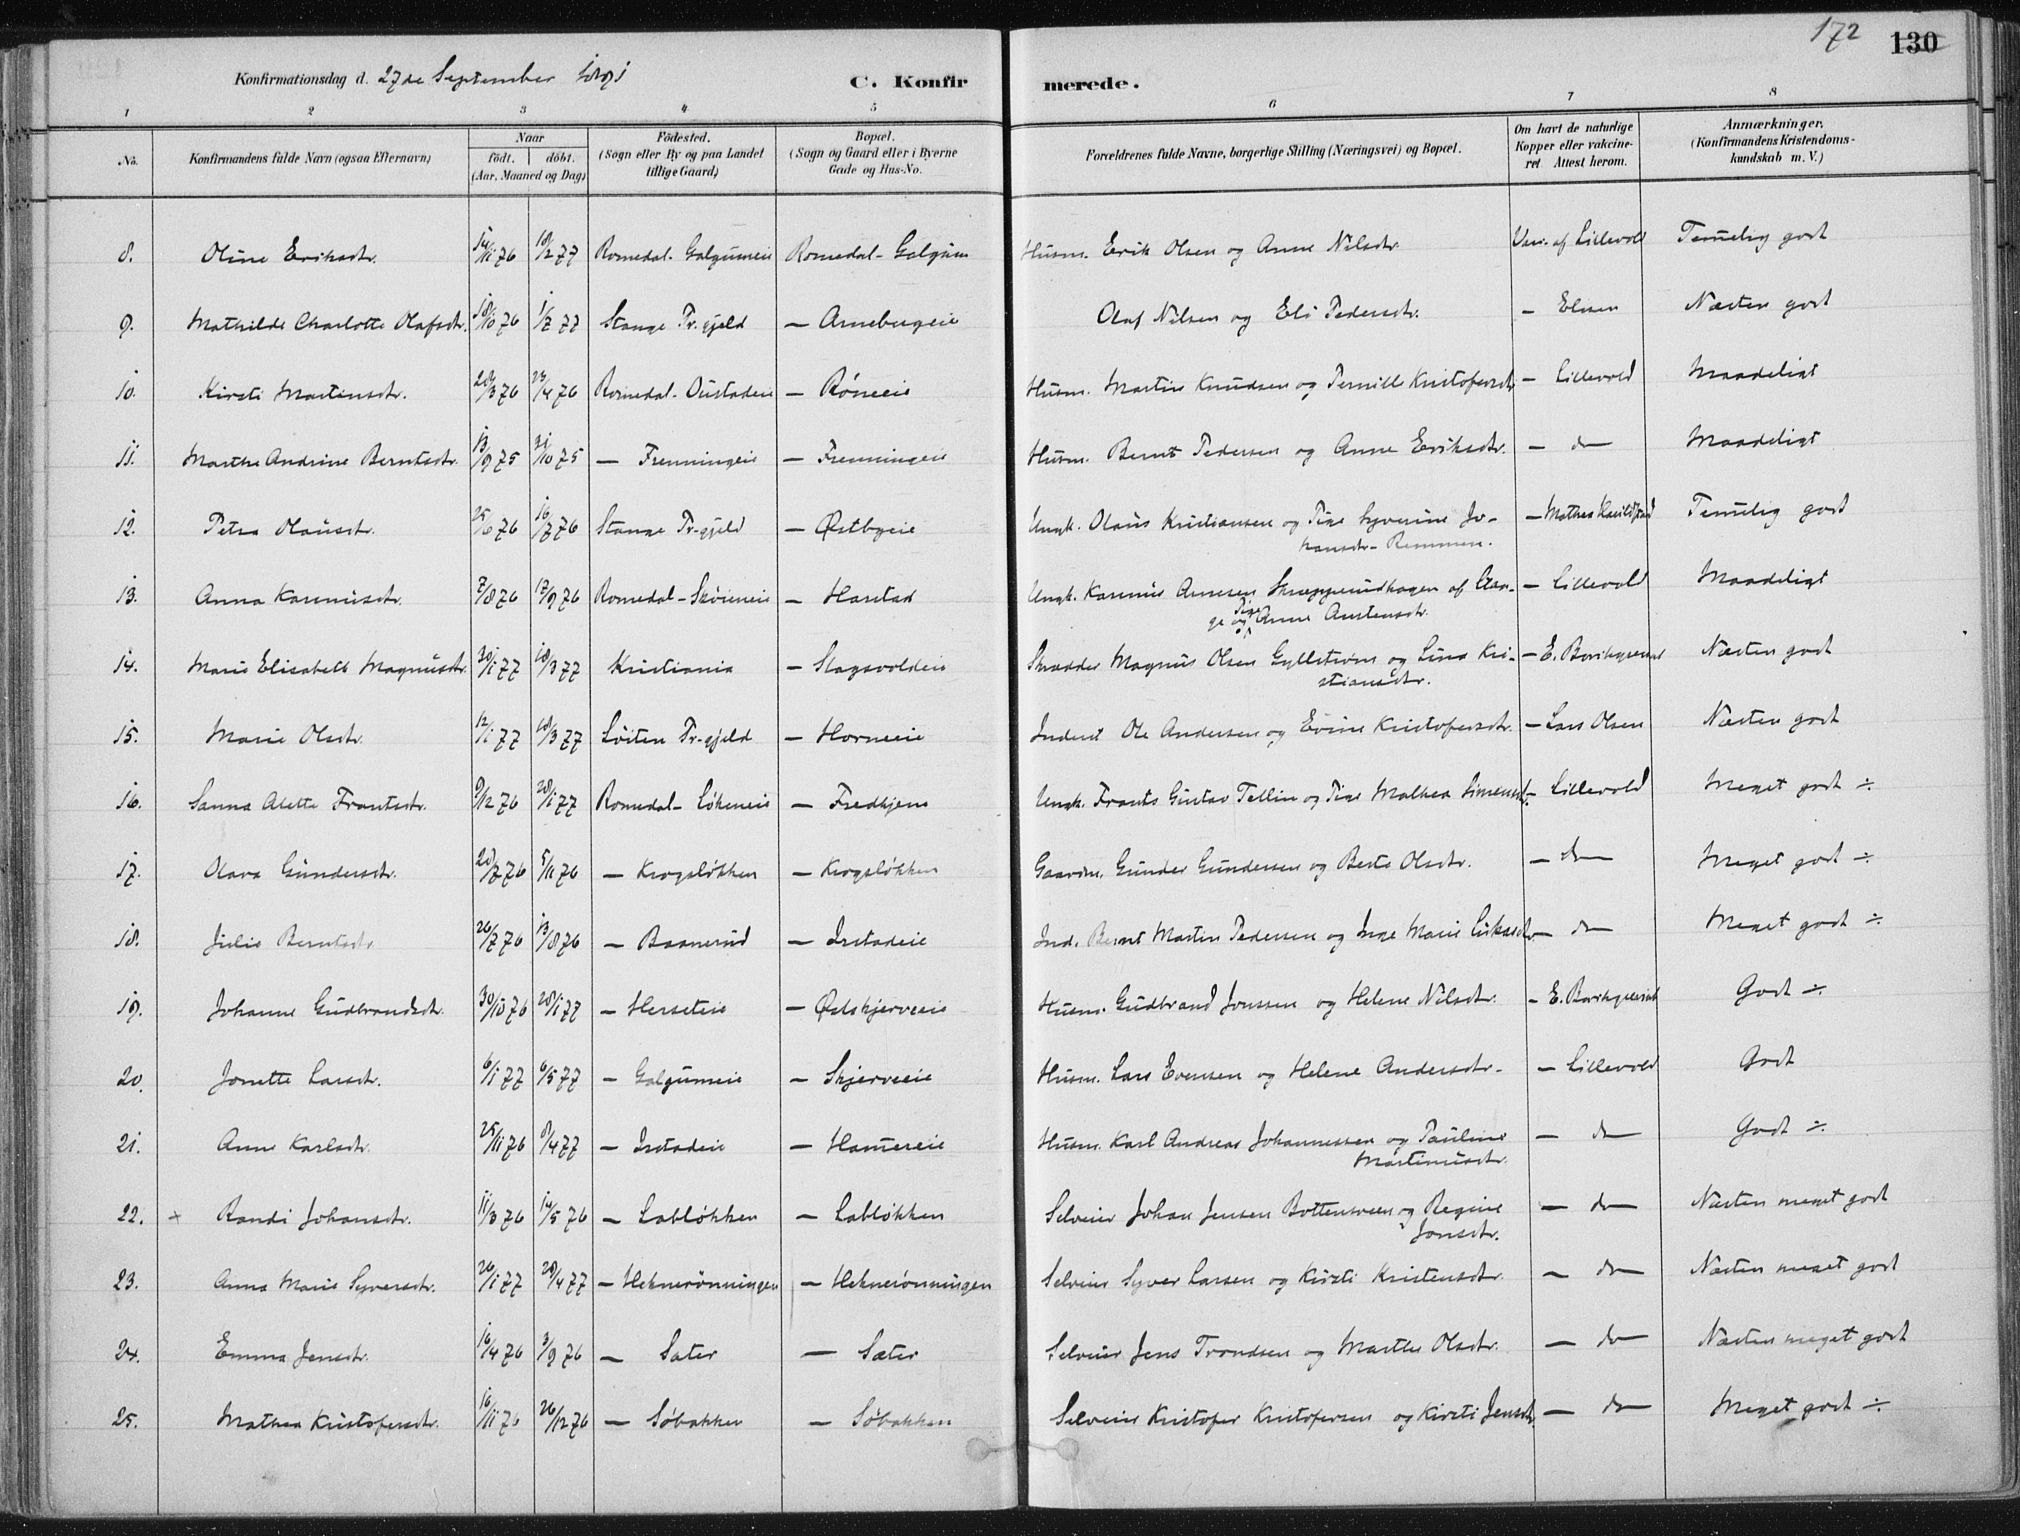 172 130
Konfirmationsdag d. 27de September 1891 C. Konfirmerede.
1 2 3 4 5 6 7 8
No. Konfirmandens fulde Navn (ogsaa Efternavn) Naar födt. döbt. (Aar, Maaned og Dag) Födested. (Sogn eller By og paa Landet tillige Gaard) Bopæl. (Sogn og Gaard eller i Byerne Gade og Hus-No. Forældrenes fulde Navne, borgerlige Stilling (Næringsvei) og Bopæl. Om havt de naturlige Kopper eller vakcineret. Attest herom. Anmærkninger. (Konfirmandens Kristendomskundskab m. V.)
8. Oline Eriksdtr. 14/11 76 18/2 77 Romedal. Galgumeie Romedal - Galgum Husm. Erik Olsen og Anne Nilsdtr. Vac. af Lillevold Temelig godt
9. Mathilde Charlotte Olafsdtr. 18/10 76 1/7 77 Stange Pr.gjeld — Arnebergeie Olaf Nilsen og Eli Pedersdtr. — Elisen Næsten godt
10. Kirsti Martinsdtr. 28/3 76 23/4 76 Romedal - Oustadeie — Röneeie Husm. Martin Knudsen og Pernille Kristofersdtr — Lillevold Maadeligt
11. Marthe Andrine Berntsdtr. 13/9 75 31/10 75 — Frenningeie — Frenningeie Husm. Bernt Pedersen og Anne Eriksdtr. — do — Maadeligt
12. Petra Olausdtr. 25/6 76 16/7 76 Stange Pr-gjeld — Østbyeie Ungk. Olaus Kristiansen og Pige Syverine Johansdtr - Remmen. — Mathea Temelig godt
13. Anna Karenusdtr. 7/8 76 17/9 76 Romedal - Skøieneie — Harstad Ungk. Karenius Arnesen Skræpperudhagen af Stange og Pige Anne Austensdtr. — Lillevold Maadeligt
14. Marie Elisabeth Magnusdtr. 30/1 77 18/3 77 Kristiania — Slagsvoldeie Skrædder Magnus Olsen Gyllstrøm og Lina Kristiansdtr. — E. Næsten godt
15. Marie Olsdtr. 12/1 77 18/3 77 Löiten Pr-gjeld — Horneeie Inderst Ole Andersen og Eline Kristofersdtr. — Lars Olsen Næsten godt
16. Sanna Alette Frantsdtr. 9/12 76 28/1 77 Romedal - Lökeneie — Fredhjem Ungk. Frants Gustav Tellin og Pige Mathea Simensdtr. — Lillevold Meget godt ÷
17. Olava Gundersdtr. 20/7 76 5/11 76 — Krogsløkken — Krogsløkken Gaardm. Gunder Gundersen og Berte Olsdtr. — do — Meget godt ÷
18. Julie Berntsdtr. 26/7 76 13/8 76 — Baanerud — Irstadeie Ind. Bernt Martin Pedersen og Inge Marie Eriksdtr — do — Meget godt ÷
19. Johanne Gudbrandsdtr. 30/10 76 28/1 77 — Herseteie — Østskjerveeie Husm. Gudbrand Jonssen og Helene Nilsdtr. — E. Godt ÷
20. Jonette Larsdtr. 6/1 77 6/5 77 — Galgumeie — Skjerveeie Husm. Lars Evensen og Helene Andersdtr. — Lillevold Godt
21. Anne Karlsdtr. 25/11 76 8/4 77 — Irstadeie — Hamereie Husm. Karl Andreas Johannessen og Pauline Martinusdtr. — do — Godt ÷
22. × Randi Johansdtr. 11/3 76 14/5 76 — Labløkken — Labløkken Selveier Johan Jensen og Regine Jonsdtr. — do — Næsten meget godt
23. Anna Marie Syversdtr. 26/1 77 29/4 77 — Heknerönningen — Heknerönningen Selveier Syver Larsen og Kirsti Kristensdtr. — do — Næsten meget godt
24. Emma Jensdtr. 16/4 76 3/9 76 — Sæter — Sæter Selveier Jens Trondsen og Marthe Olsdtr. — do — Næsten meget godt
25. Mathea Kristofersdtr. 16/11 76 26/12 76 — Söbakken — Söbakken Selveier Kristofer Kristofersen og Kirsti Jensdtr — do — Meget godt ÷